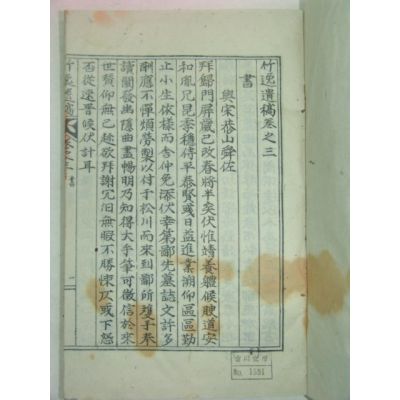 竹逸遺稿卷之三
書
與宋恭山舜佐
拜歸門屏歲已改春將半矣伏惟靖養軆候腴道安
和胤兄昆季穩侍平泰賢彧日益進業溯仰區區勤
止小生依㨾而舍仲免添伏幸第鄙先墓誌文許多
酬應不憚煩勞製以付于松川而來到鄙所䨥手奉
讀闡發幽隱曲盡暢明乃知得大手筆可徵信於來
世贊仰無已趁欲拜謝冗汨無暇不勝悚仄或下恕
否從速晋候伏計耳
竹逸遺稿 卷之三 書 一
No. 1551